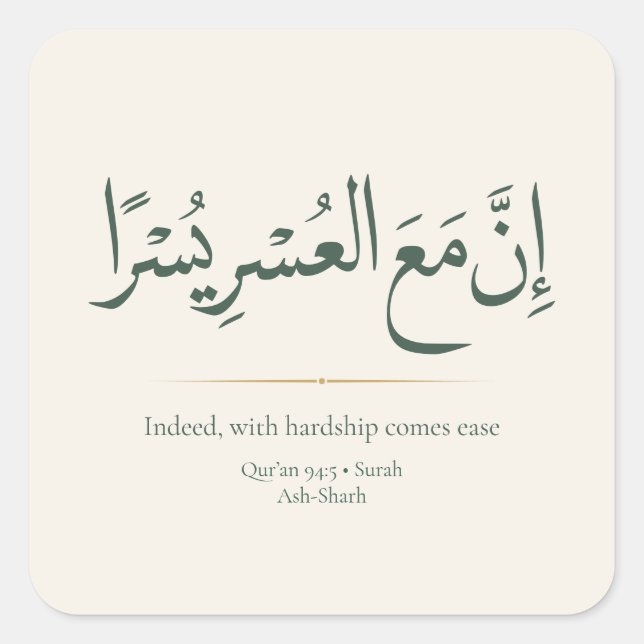 إِنَّ مَعَ الْعُسْرِ يُسْرًا
Indeed, with hardship comes ease
Qur’an 94:5 • Surah
Ash-Sharh